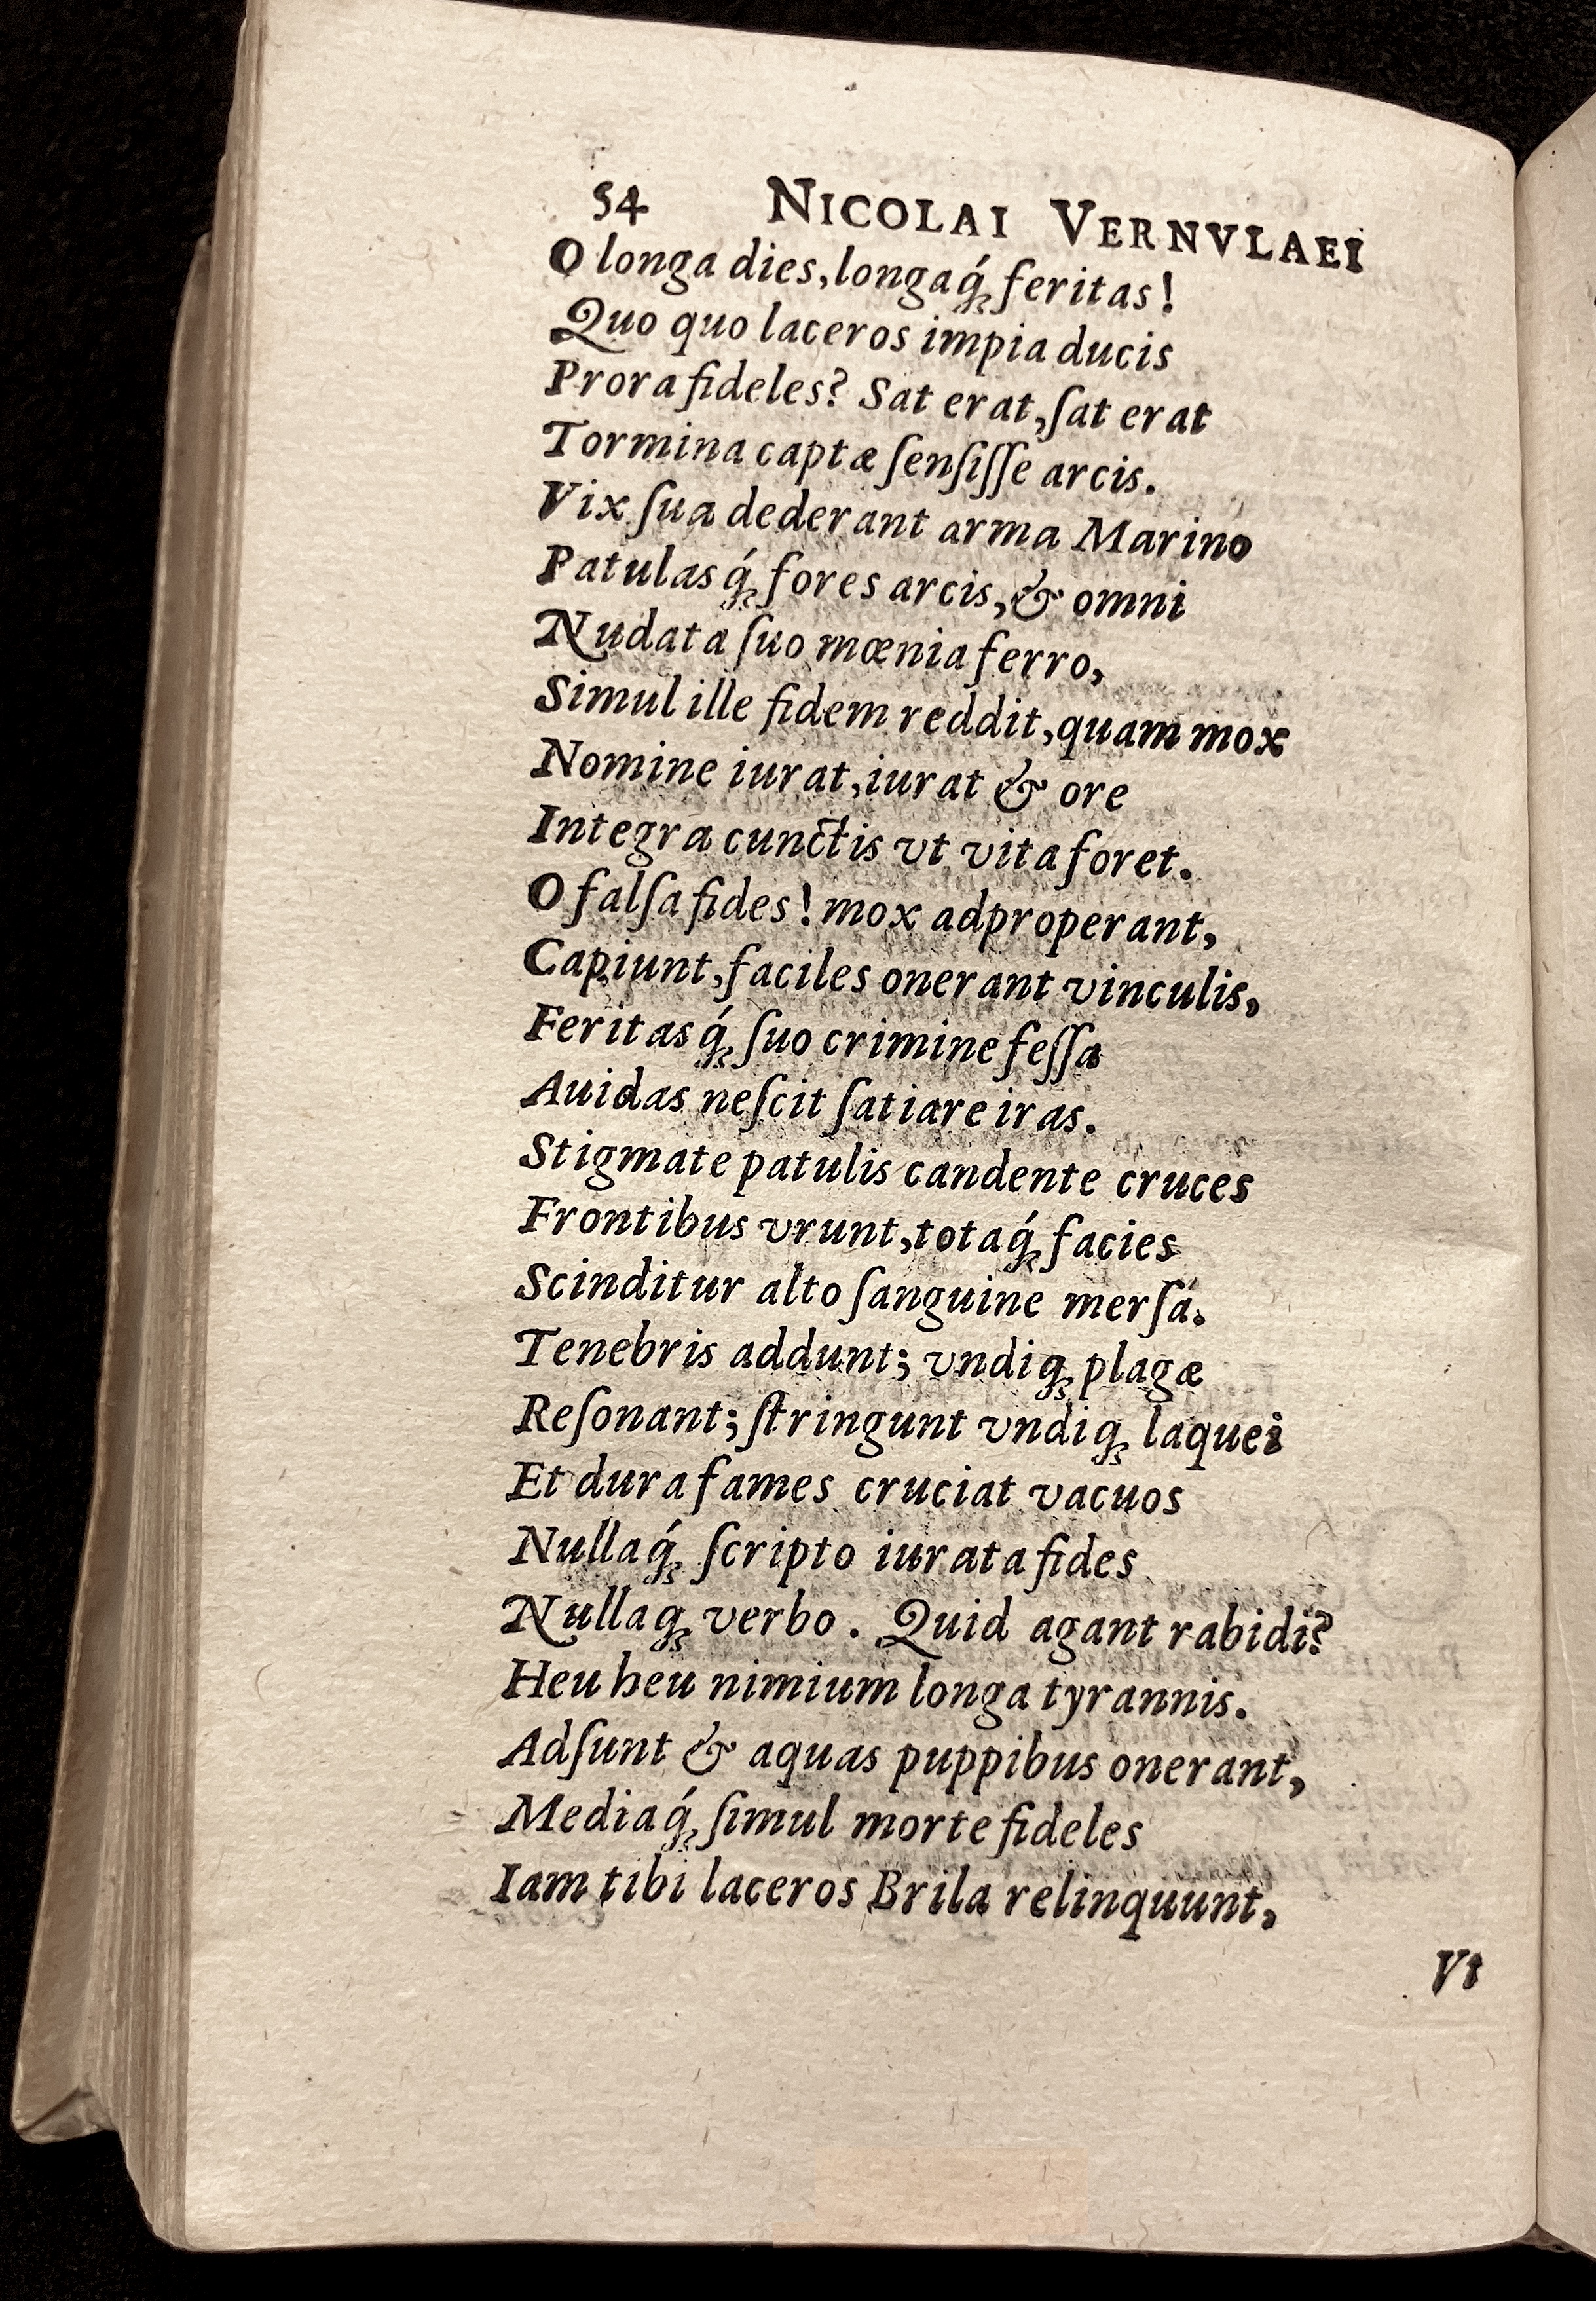 54 NICOLAI VERNVLAEI
O longa dies, longaq́ꝫ feritas!
Quo quo laceros impia ducis
Prora fideles? Sat erat, ſat erat
Tormina captæ ſenſiſſe arcis.
Vix ſua dederant arma Marino
Patulasq́ꝫ fores arcis, & omni
Nudata ſuo mœnia ferro,
Simul ille fidem reddit, quam mox
Nomine iurat, iurat & ore
Integra cunctis vt vita foret.
O falſa fides! mox adproperant,
Capiunt, faciles onerant vinculis,
Feritasq́ꝫ ſuo crimine feſſa
Auidas neſcit ſatiare iras.
Stigmate patulis candente cruces
Frontibus vrunt, totaq́ꝫ facies
Scinditur alto ſanguine merſá.
Tenebris addunt; vndiqꝫ plagæ
Reſonant; ſtringunt vndiqꝫ laquei
Et dura fames cruciat vacuos
Nullaq́ꝫ ſcripto iurata fides
Nullaqꝫ verbo. Quid agant rabidi?
Heu heu nimium longa tyrannis.
Adſunt & aquas puppibus onerant,
Mediaq́ꝫ ſimul morte fideles
Iam tibi laceros Brila relinquunt,
Vt